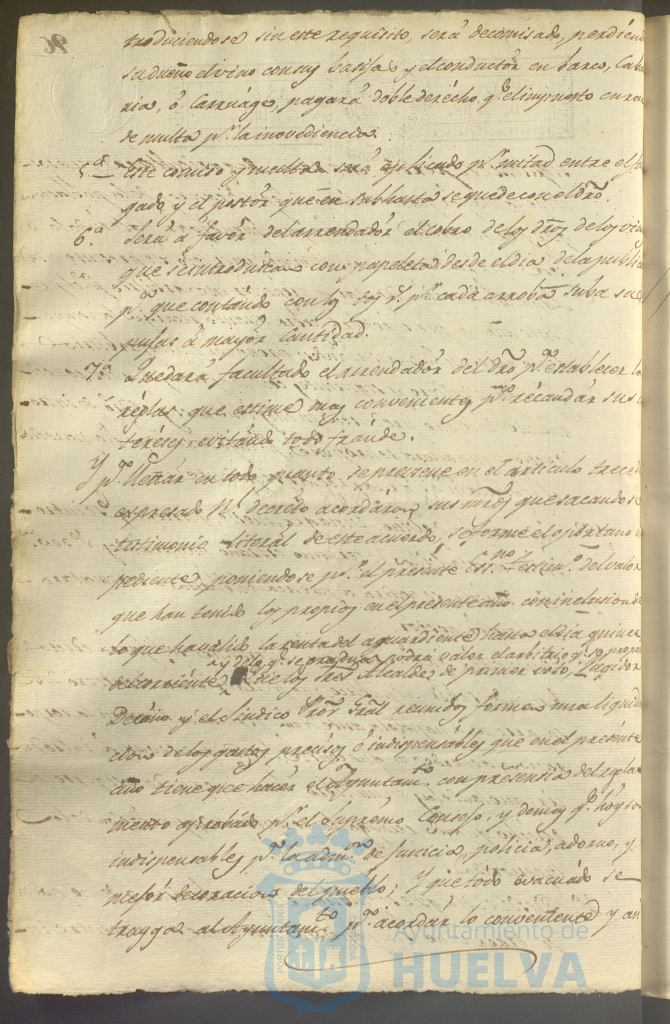 troduciendose sin este requisito, será decomisado, perdiendo
su dueño el vino con sus basijas y el conductor en barco, Caba
ria, ó Carruage, pagará doble derecho q.e el impuesto en ra
de multa p.r la inovediencia.
5ª Este comiso y multa será aplicado p.r mitad entre el Ju
gado y el postor que en subhasta se quede con el dro.
6ª Será á favor del arrendador el cobro de los dros de los vin
que se introduscan con papeleta desde el dia de la public
p.a que contando con los dos r.s p.r cada arroba suba su
pujas á mayor Cantidad.
7ª Quedará facultado el arrendador del dro p.a establecer la
reglas que estime mas convenientes p.a recaudar sus in
tereses evitando todo fraude.
Y p.a llenar en todo quanto se previene en el articulo trece d
expresado R.l decreto acordaron sus mrds que sacandose
testimonio literal de este acuerdo, se forme el oportuno e
pediente, poniendose p.r el presente Es.no testim.o del valor
que han tenido los propios en el presente año con inclusion de
lo que ha valido la renta del aguardiente hasta el dia quince
y de lo q.e se produsca podrá valer el arbitrio q.e se propon
del corriente los Sres Alcalde de primer voto, Regidor
Decano y el Sindico Pror Gral reunidos formen una liquida
cion de los gastos precisos é indispensables que en el presente
año tiene que hacer el Ayuntam.to con presencia del regla
mento aprobado p.r el Supremo Consejo, y demas q.e hoy so
indispensables p.a la adm.on de Justicia, policia, adorno, y
mejor decoracion del pueblo; Y que todo evacuado se
trayga al Ayuntam.to p.a acordar lo conveniente y asi
Ayuntamiento de
HUELVA
PORTUS MARIS